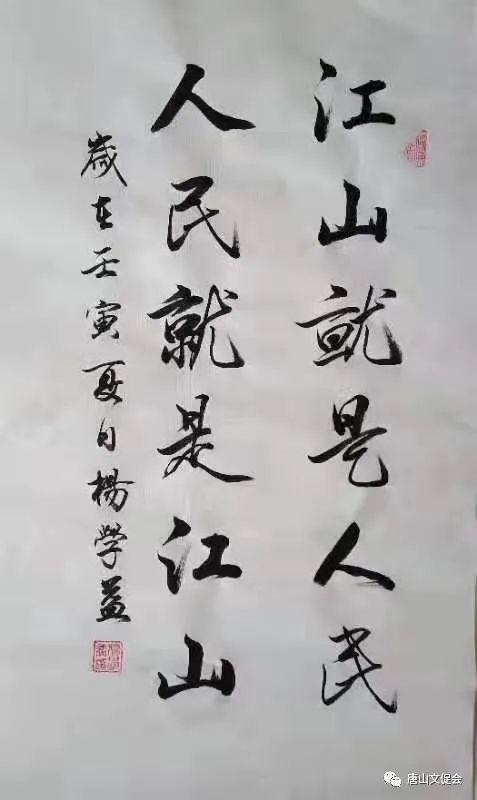 江山就是人民
人民就是江山
歲在壬寅夏日楊學益
唐山文促会